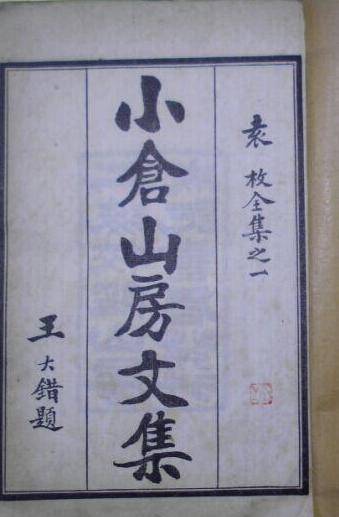 袁枚全集之一
小倉山房文集
王大錯題